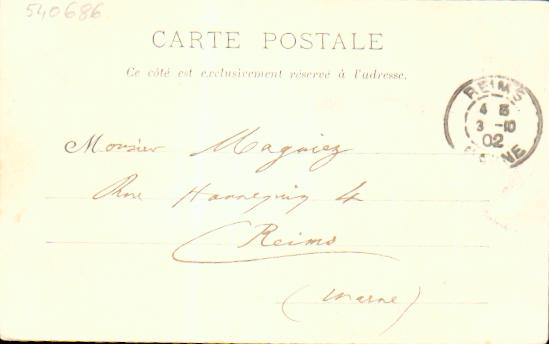 540686
CARTE POSTALE
Ce côté est exclusivement réservé à l'adresse.
REIMS
4 E
3 -10
02
MARNE
Monsieur Magniez
Rue Hannequin 4
Reims
(Marne)